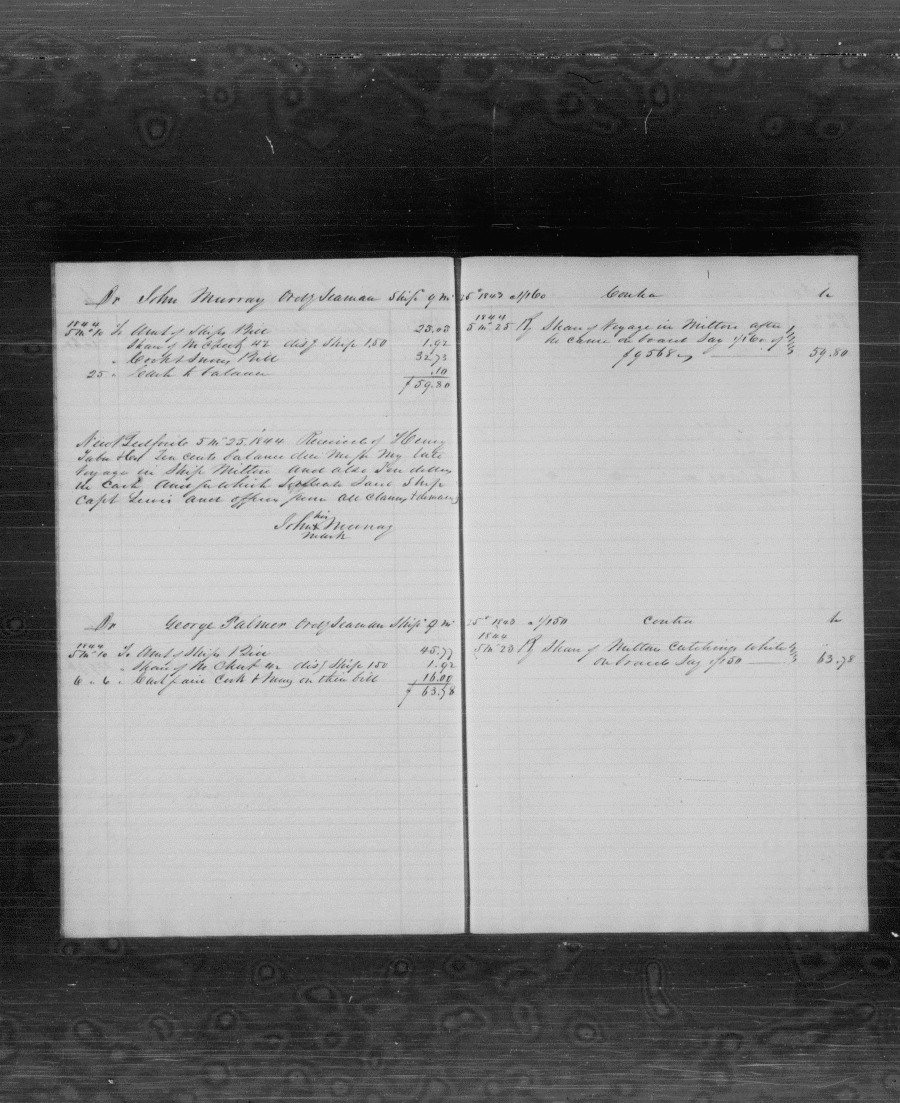 Dr John Murray Ordy Seaman Ship 9 mo 25 1843 1/160 Contra Cr
1844
5 mo 10 To Amt of Ships Bill 25.05
Share of M Chest 42 disf Ship 1.50 1.92
" Cook & Sunry Bill 32.73
25 " Cash to balance .10
$ 59.80
1844
5 mo 25 By Share of Voyage in Milton after
he came on board Say 1/160 of
$9568 59.80
New Bedford 5 mo 25, 1844 Received of Henry
Taber & Co Ten cents balance due me for my late
Voyage in Ship Milton and also Ten dollars
in Cash and for which I release said Ship
Capt Lewis and officers from all claims & demands
his
John x Murray
mark
Dr George Palmer Ordy Seaman Ship 9 mo 25 1843 1/150 Contra Cr
1844
5 mo 10 To Amt of Ships Bill 45.77
" Share of M Chest 42 disf Ship 1.50 1.92
6 " 6 " Cash paid Cook & Sunry on their bill 16.00
$ 63.78
1844
5 mo 25 By Share of Miltons Catchings While
on board Say 1/150 63.78